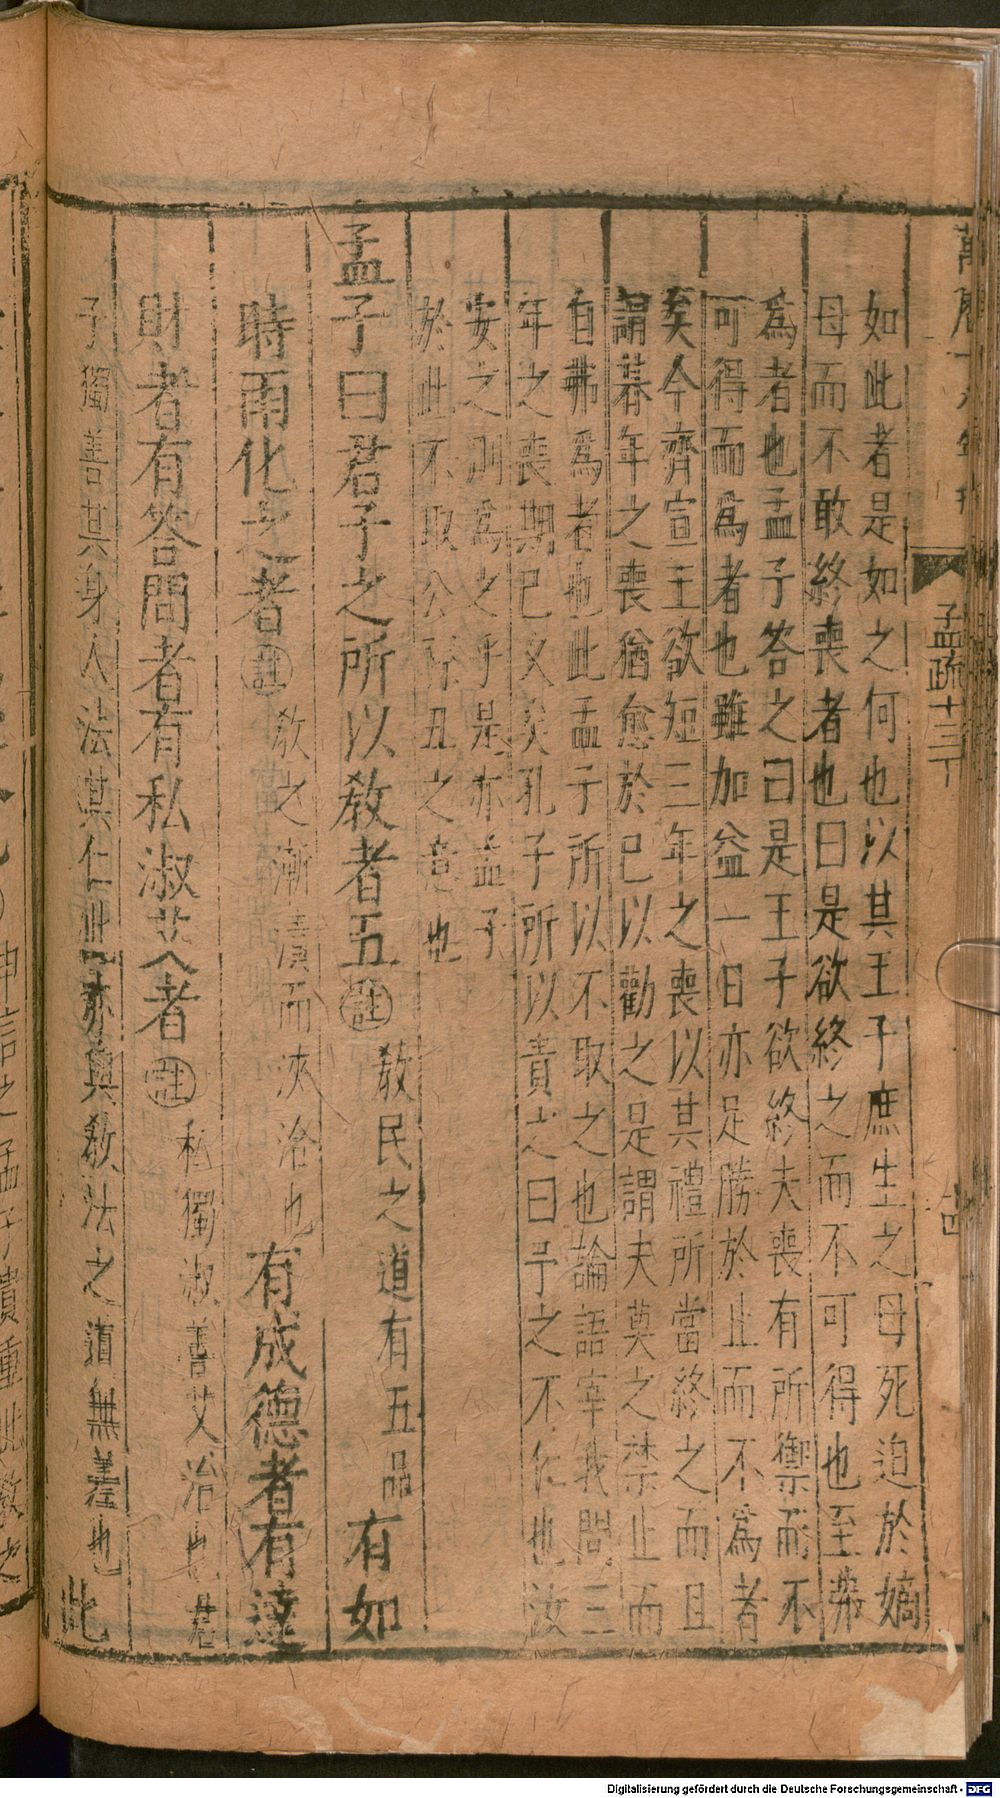 萬曆十八年刊 孟疏十三下 十四
如此者是如之何也以其王子庶生之母死迫於嫡
母而不敢終喪者也曰是欲終之而不可得也至弗
爲者也孟子答之曰是王子欲終夫喪有所禦而不
可得而爲者也雖加益一日亦足勝於止而不爲者
矣今齊宣王欲短三年之喪以其禮所當終之而且
謂朞年之喪猶愈於已以勸之是謂夫莫之禁止而
自弗爲者也此孟子所以不取之也論語宰我問三
年之喪期已久矣孔子所以責之曰予之不仁也汝
安之則爲之乎是亦孟子
於此不取公孫丑之意也
孟子曰君子之所以敎者五 註 敎民之道有五品 有如
時雨化之者 註 敎之漸漬而浹洽也 有成德者有達
財者有答問者有私淑艾者 註 私獨淑善艾治也君
子獨善其身人法其仁此亦與敎法之道無差也 此
申言之孟子貴重此敎之
Digitalisierung gefördert durch die Deutsche Forschungsgemeinschaft - DFG